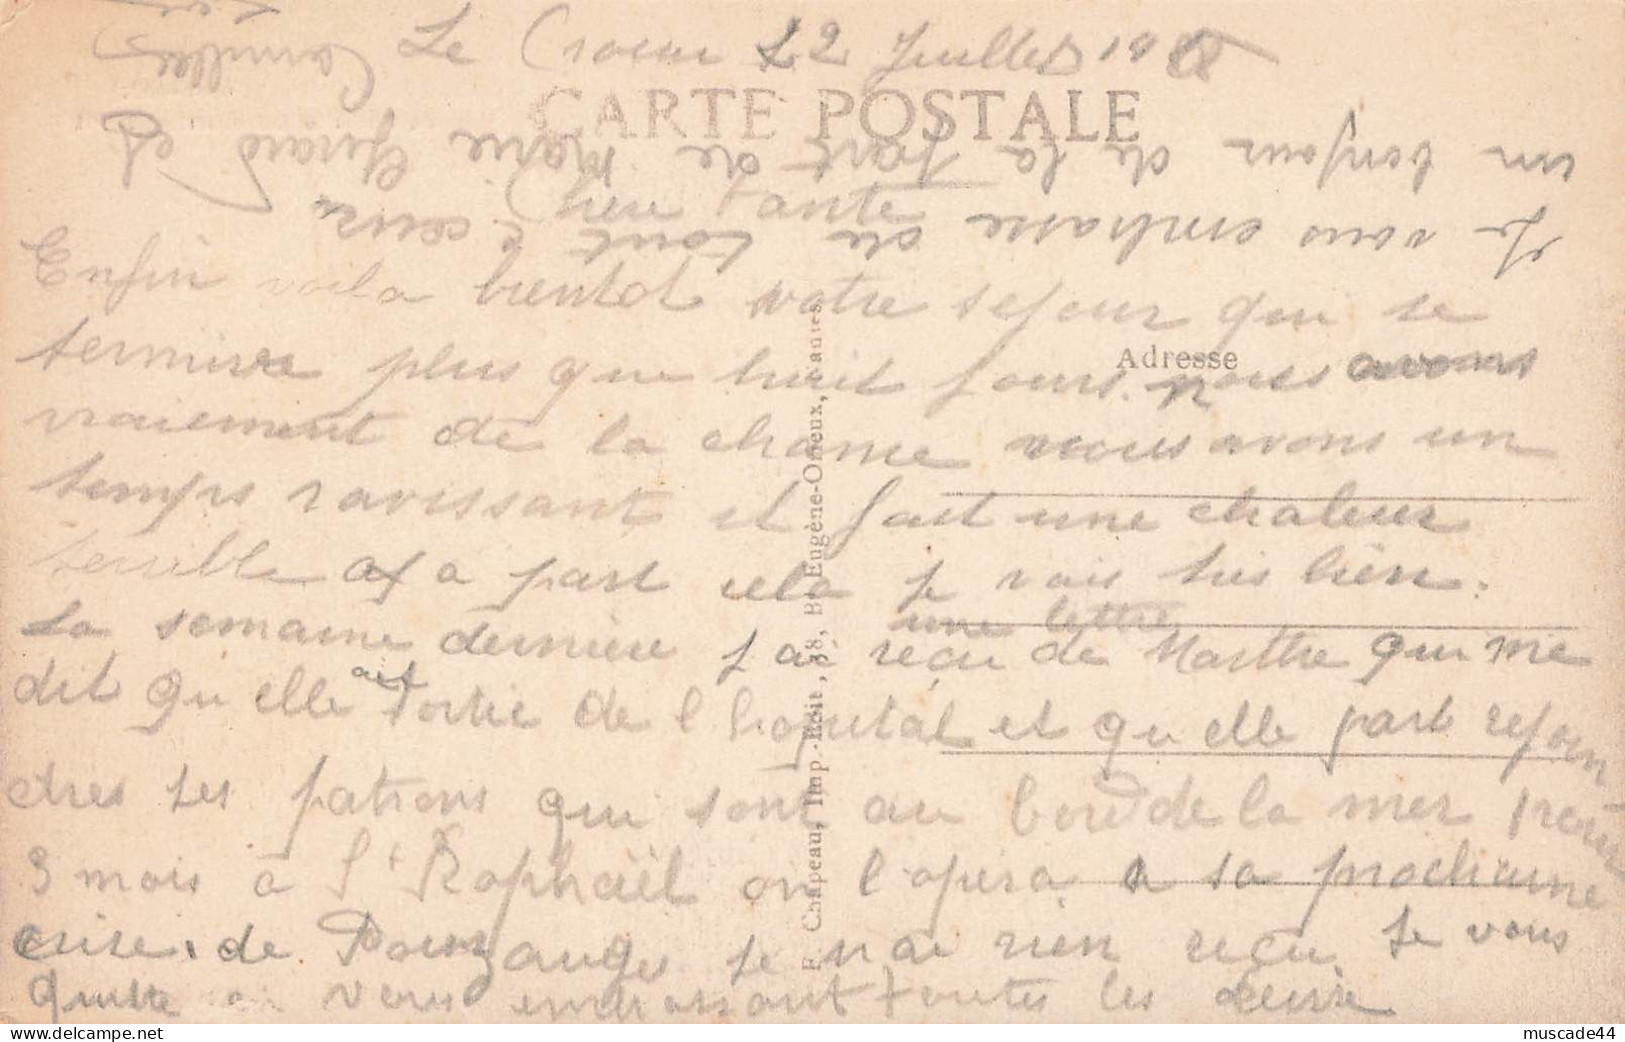 Le 22 Juillet 19
CARTE POSTALE
Chère tante
Enfin voila bientot notre sejour qui se
termine plus que huit jours. nous avons
Adresse
vraiement de la chance nous avons un
temps ravissant et fait une chaleur
terrible a part cela je vais tres bien.
une lettre
La semaine dernière j ai reçu de Marthe qui me
dit qu elle ait sortie de l hopital et qu elle part rejoin
dres ses patrons qui sont au bord de la mer pour
3 mois à St Raphaël on l opera a sa prochaine
crise. de Pouzauges je n ai rien reçu. Je vous
quitte en vous embrassant toutes les deux
Je vous embrasse du tout cœur
un bonjour de la part de Marie Gerard et
Camille
F. Chapeau, Imp.-Edit., 38, Bd Eugène-Orieux, Nantes
muscade44